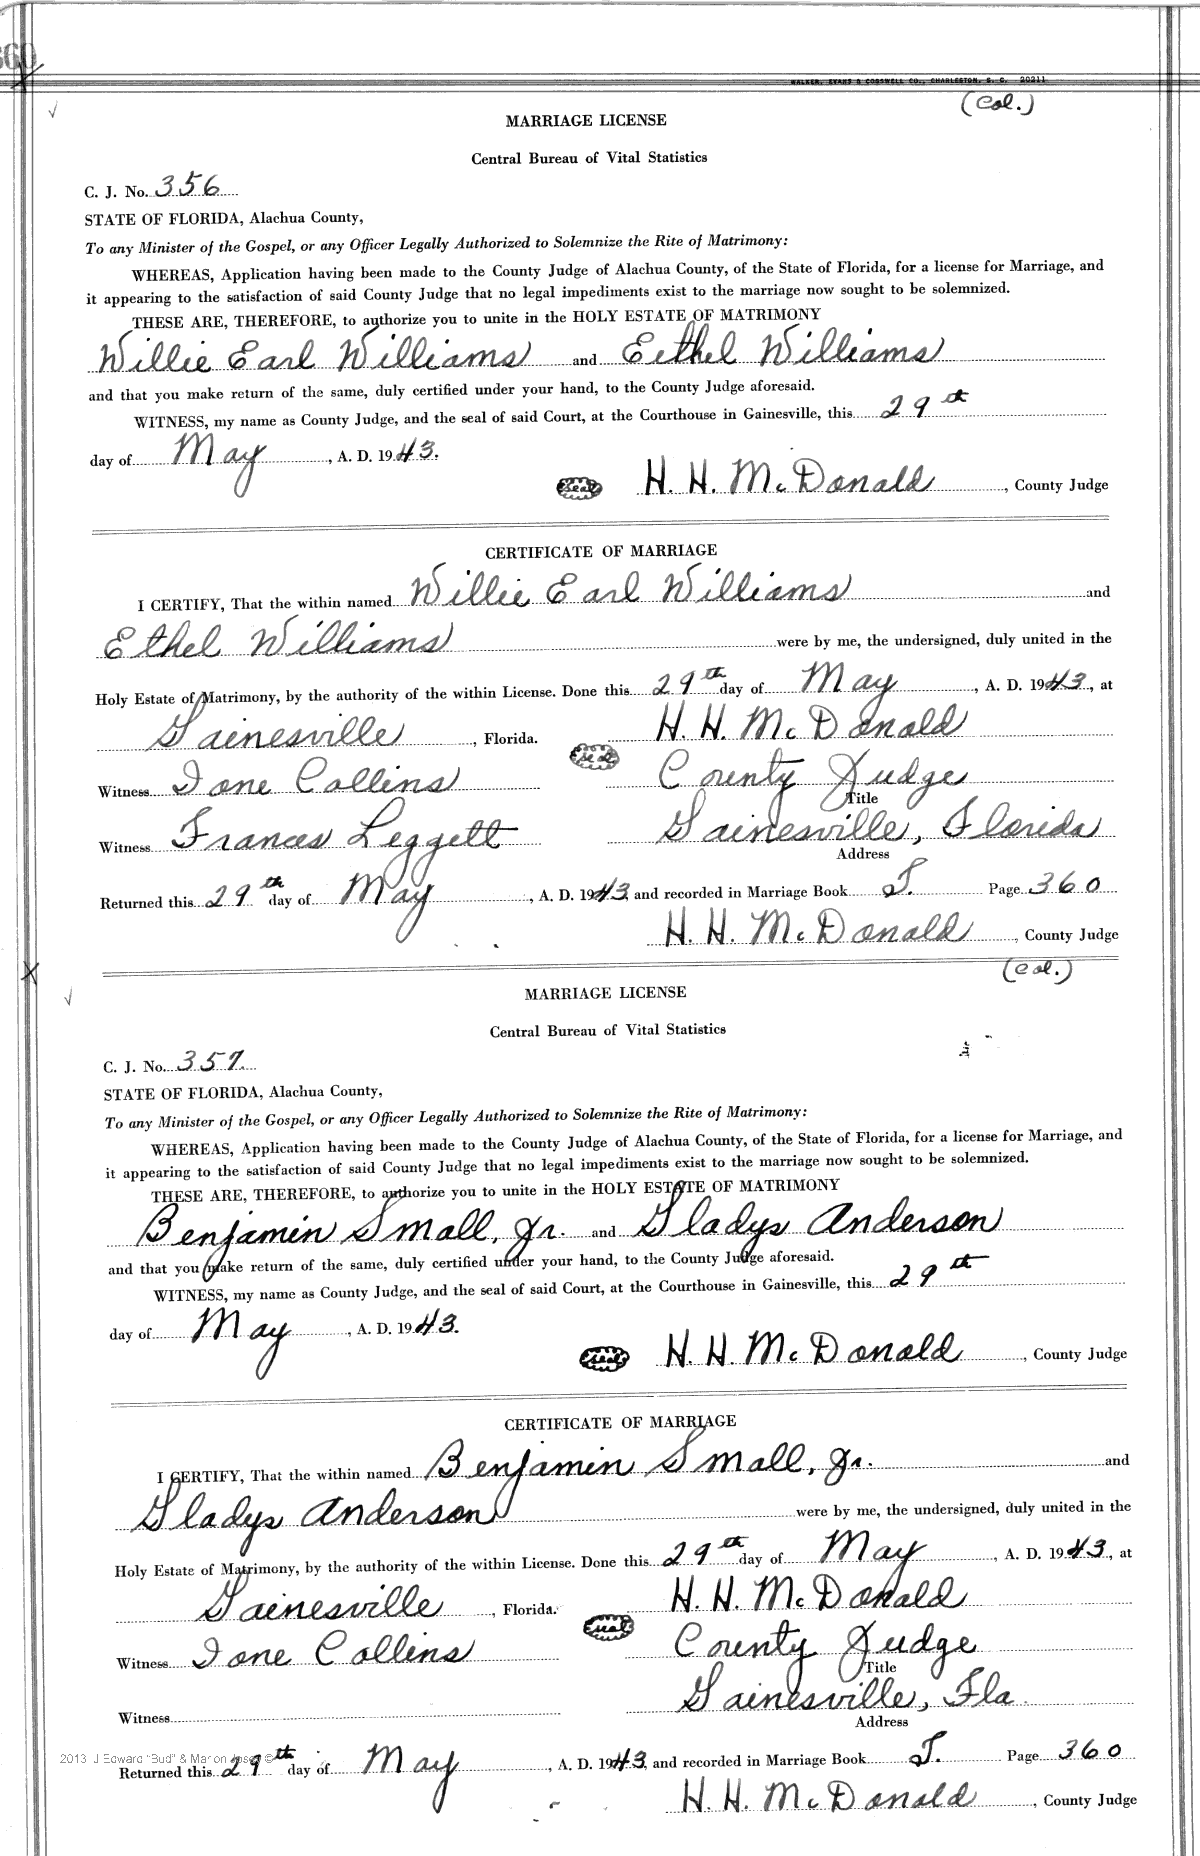 360
WALKER, EVANS & COGSWELL CO., CHARLESTON, S. C. 20211
(Col.)
MARRIAGE LICENSE
Central Bureau of Vital Statistics
C. J. No. 356
STATE OF FLORIDA, Alachua County,
To any Minister of the Gospel, or any Officer Legally Authorized to Solemnize the Rite of Matrimony:
WHEREAS, Application having been made to the County Judge of Alachua County, of the State of Florida, for a license for Marriage, and
it appearing to the satisfaction of said County Judge that no legal impediments exist to the marriage now sought to be solemnized.
THESE ARE, THEREFORE, to authorize you to unite in the HOLY ESTATE OF MATRIMONY
Willie Earl Williams and Eethel Williams
and that you make return of the same, duly certified under your hand, to the County Judge aforesaid.
WITNESS, my name as County Judge, and the seal of said Court, at the Courthouse in Gainesville, this 29th
day of May, A. D. 1943.
seal H. H. McDonald, County Judge
CERTIFICATE OF MARRIAGE
I CERTIFY, That the within named Willie Earl Williams and
Ethel Williams were by me, the undersigned, duly united in the
Holy Estate of Matrimony, by the authority of the within License. Done this 29th day of May, A. D. 1943, at
Gainesville, Florida. H. H. McDonald
seal
Witness Ione Collins County Judge
Title
Witness Frances Leggett Gainesville, Florida
Address
Returned this 29th day of May, A. D. 1943, and recorded in Marriage Book J. Page 360
H. H. McDonald, County Judge
(Col.)
MARRIAGE LICENSE
Central Bureau of Vital Statistics
C. J. No. 357.
STATE OF FLORIDA, Alachua County,
To any Minister of the Gospel, or any Officer Legally Authorized to Solemnize the Rite of Matrimony:
WHEREAS, Application having been made to the County Judge of Alachua County, of the State of Florida, for a license for Marriage, and
it appearing to the satisfaction of said County Judge that no legal impediments exist to the marriage now sought to be solemnized.
THESE ARE, THEREFORE, to authorize you to unite in the HOLY ESTATE OF MATRIMONY
Benjamin Small, Jr. and Gladys Anderson
and that you make return of the same, duly certified under your hand, to the County Judge aforesaid.
WITNESS, my name as County Judge, and the seal of said Court, at the Courthouse in Gainesville, this 29th
day of May, A. D. 1943.
seal H. H. McDonald, County Judge
CERTIFICATE OF MARRIAGE
I CERTIFY, That the within named Benjamin Small, Jr. and
Gladys Anderson were by me, the undersigned, duly united in the
Holy Estate of Matrimony, by the authority of the within License. Done this 29th day of May, A. D. 1943, at
Gainesville, Florida. H. H. McDonald
seal
Witness Ione Collins County Judge
Title
Witness Gainesville, Fla.
Address
2013 J Edward "Bud" & Marion
Returned this 29th day of May, A. D. 1943, and recorded in Marriage Book J. Page 360
H. H. McDonald, County Judge